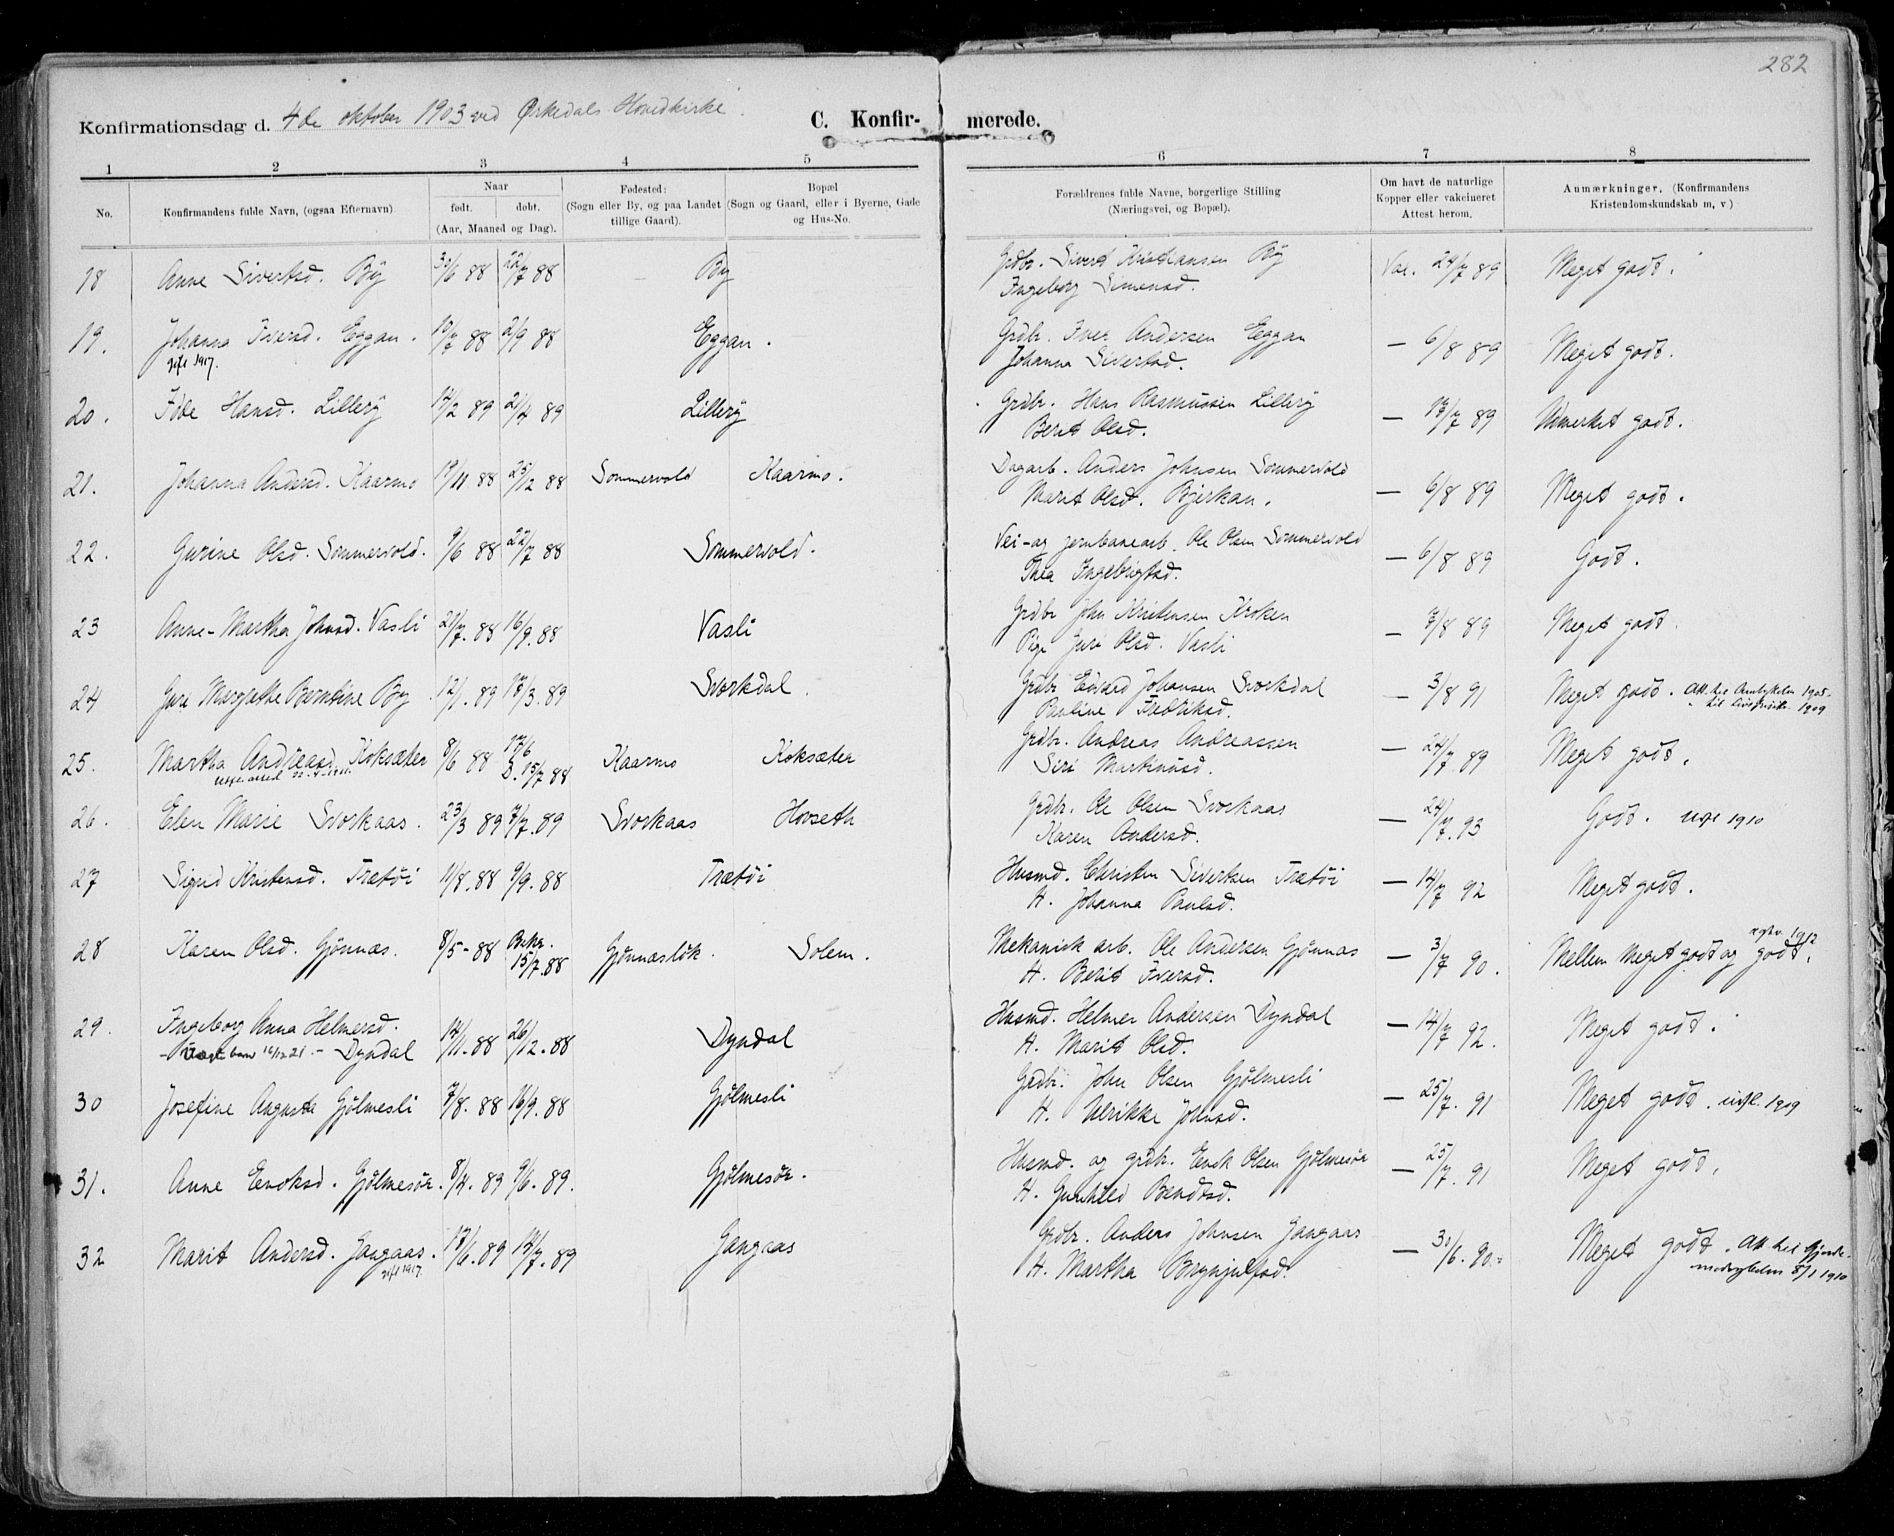 282
Konfirmationsdag d. 4de oktober 1903 ved Ørkedals Hovedkirke C. Konfir- merede.
1 2 3 4 5 6 7 8
No. Konfirmandens fulde Navn, (ogsaa Efternavn) Naar født. døbt. (Aar, Maaned og Dag). Fødested: (Sogn eller By, og paa Landet tillige Gaard). Bopæl (Sogn og Gaard, eller i Byerne, Gade og Hus-No. Forældrenes fulde Navne, borgerlige Stilling (Næringsvei, og Bopæl). Om havt de naturlige Kopper eller vakcineret Attest herom. Anmærkninger. (Konfirmandens Kristendomskundskab m, v)
18 Anne Sivertsd. By 30/6 88 22/7 88 By Grdbr. Sivert Kristiansen By Vac. 24/7 89 Meget godt.
Ingeborg Simensd.
19. Johanna Iversd. Eggan. 10/7 88 2/9 88 Eggan. Grdbr. Iver Andersen Eggan — 6/8 89 Meget godt.
gift 1917. Johanna Sivertsd.
20. Hansd. Lillery 12/2 89 21/4 89 Lillery Grdbr. Hans Rasmussen Lillery — 17/7 89 Udmerket godt.
Berit Olsd.
21. Johanna Andersd. Kaarmo 19/11 88 25/12 88 Sommervold Kaarmo. Dagarb. Anders Johnsen Sommervold — 6/8 89 Meget godt.
Marit Olsd. Bjerkan.
22. Gurine Olsd. Sommervold. 9/6 88 22/7 88 Sommervold. Vei-og jernbanearb. Ole Olsen Sommervold — 6/8 89 Godt.
Thea Ingebrigtsd.
23 Anne-Martha Johnsd. Vasli 21/7. 88 16/9. 88 Vasli Grdbr John Kristensen Kroken — 7/8 89 Meget godt.
Pige Guri Olsd. Vasli
24 Guri Margrethe Berntine By 12/1. 89 17/3. 89 Svorkdal. Grdbr Edvard Johansen Svorkdal — 3/8 91 Meget godt. Att. til 1905.
Pauline Fredriksd. 1909
25. Martha Andreasd. Koksæter 8/6 88 17/6 Kaarmo Koksæter Grdbr. Andreas Andreassen — 24/7. 89 Meget godt.
15/7. 88 Siri Martinusd.
26. Elen Marie Svorkaas. 23/3 89 7/7. 89 Svorkaas Hovseth Grdbr. Ole Olsen Svorkaas — 24/7. 93 Godt. utfl 1910
Karen Andersd.
27 Sigrid Kristensd. Trætøi 11/8. 88 9/9. 88 Trætøi Husmd. Christen Sivertsen Trætøi — 14/7 92 Meget godt.
H. Johanna Paulsd.
28 Karen Olsd. Gjønnæs. 8/5-88 Bekr. 15/7. 88 Gjønnæsløk. Solem. Mekanisk arb. Ole Andersen Gjønnæs — 3/7 90. Mellem Meget godt og godt. 1912
H. Berit Iversd.
29. Ingeborg Anna Helmersd. 14/11. 88 26/12. 88 Dyndal Husmd. Helmer Andersen Dyndal — 14/7 92. Meget godt.
Dyndal H. Marit Olsd.
30 Josefine Augusta Gjølmesli 7/8. 88 16/9. 88 Gjølmesli Grdbr. John Olsen Gjølmesli — 25/7. 91 Meget godt. utfl. 1909
H. Ulrikke Johnsd.
31. Anne Enoksd. Gjølmesør. 8/4. 89 9/6. 89. Gjølmesør. Husmd. og grdbr. Enok Olsen Gjølmesør — 25/7. 91 Meget godt.
H. Gunhild Bendtsd.
32 Marit Andersd. Gangaas. 17/6. 89 14/7. 89 Gangaas Grdbr. Anders Johnsen Gangaas — 30/6. 90. Meget godt. Att til
gift 1917 H. Martha Brynjulfsd. 8/1 1910